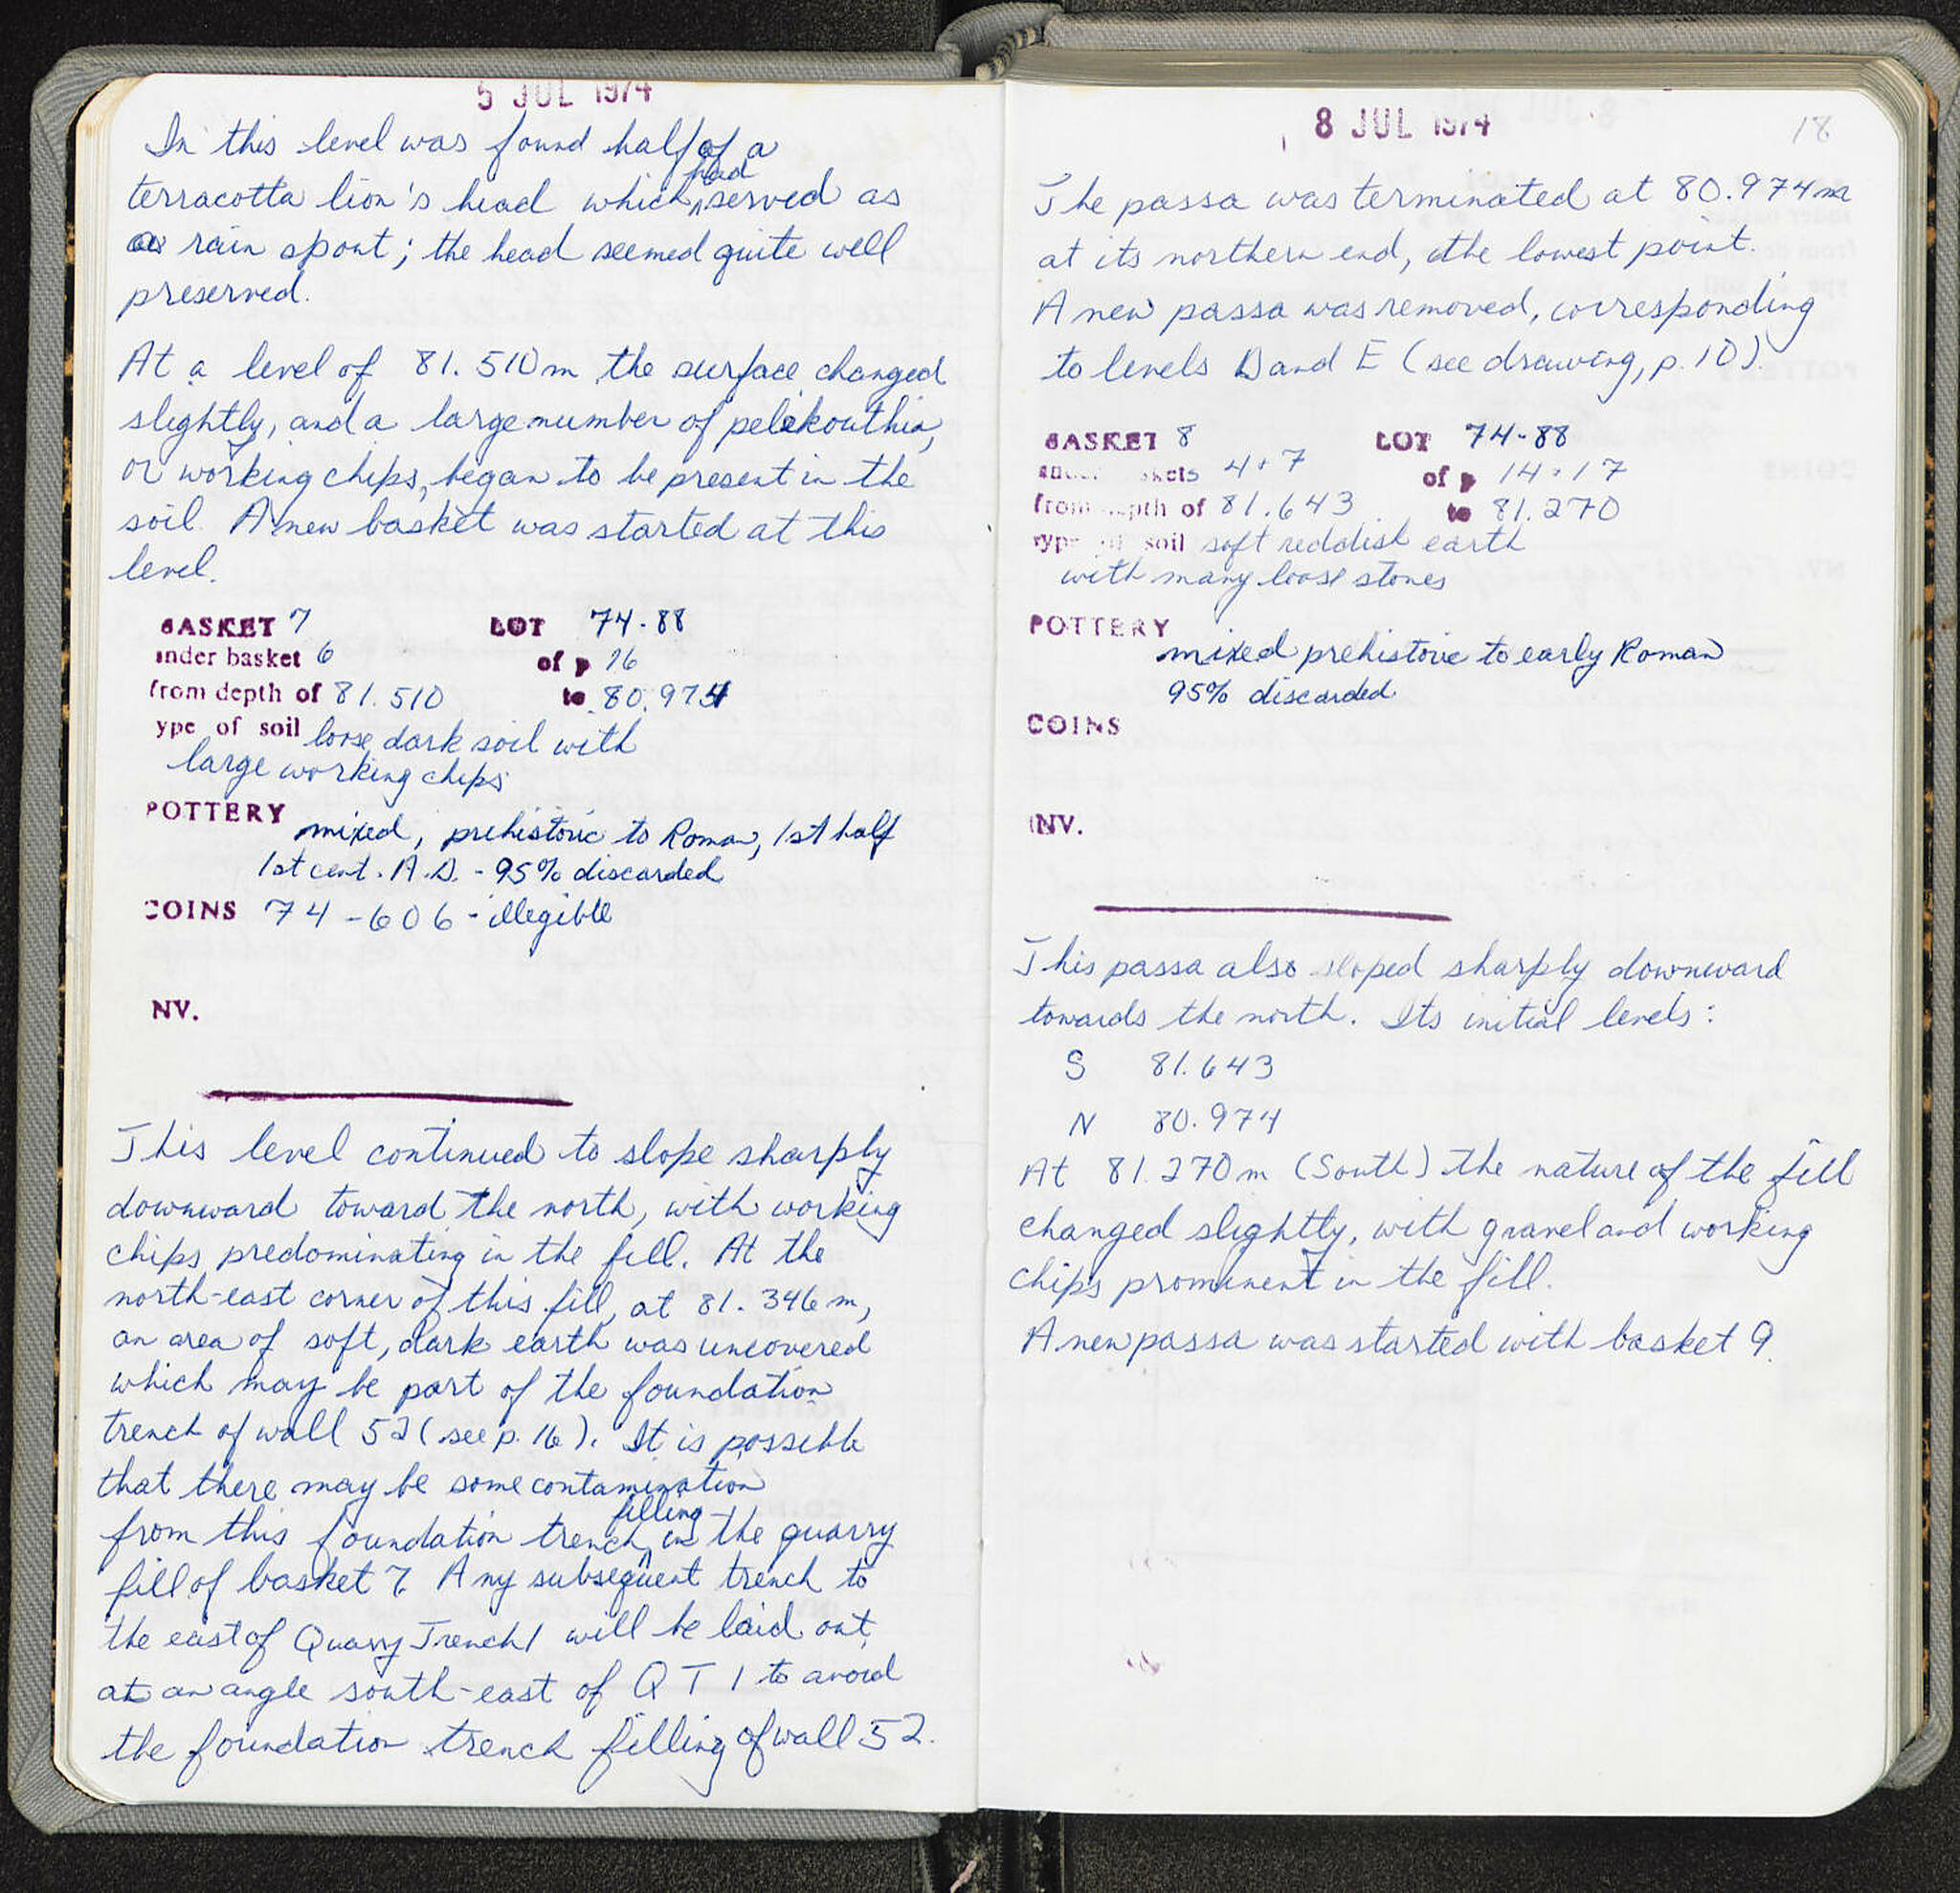 5 JUL 1974
In this level was found half of a
had
terracotta lion's head which served as
a rain spout; the head seemed quite well
preserved.
At a level of 81.510m the surface changed
slightly, and a large number of pelekouthia,
or working chips, began to be present in the
soil. A new basket was started at this
level.
BASKET 7 LOT 74-88
under basket 6 of p 16
from depth of 81.510 to 80.974
ype of soil loose dark soil with
large working chips
POTTERY mixed, prehistoric to Roman, 1st half
1st cent. A.D. - 95% discarded
COINS 74-606 - illegible
NV.
This level continued to slope sharply
downward toward the north, with working
chips predominating in the fill. At the
north-east corner of this fill, at 81.346m,
an area of soft, dark earth was uncovered
which may be part of the foundation
trench of wall 52 (see p. 16). It is possible
that there may be some contamination
filling
from this foundation trench in the quarry
fill of basket 7. Any subsequent trench to
the east of Quarry Trench 1 will be laid out
at an angle south-east of QT 1 to avoid
the foundation trench filling of wall 52.
8 JUL 1974
18
The passa was terminated at 80.974m
at its northern end, the lowest point.
A new passa was removed, corresponding
to levels D and E (see drawing, p. 10).
BASKET 8 LOT 74-88
under baskets 4+7 of p 14+17
from depth of 81.643 to 81.270
type of soil soft reddish earth
with many loose stones
POTTERY mixed prehistoric to early Roman
95% discarded
COINS
INV.
This passa also sloped sharply downward
towards the north. Its initial levels:
S 81.643
N 80.974
At 81.270m (South) the nature of the fill
changed slightly, with gravel and working
chips prominent in the fill.
A new passa was started with basket 9.